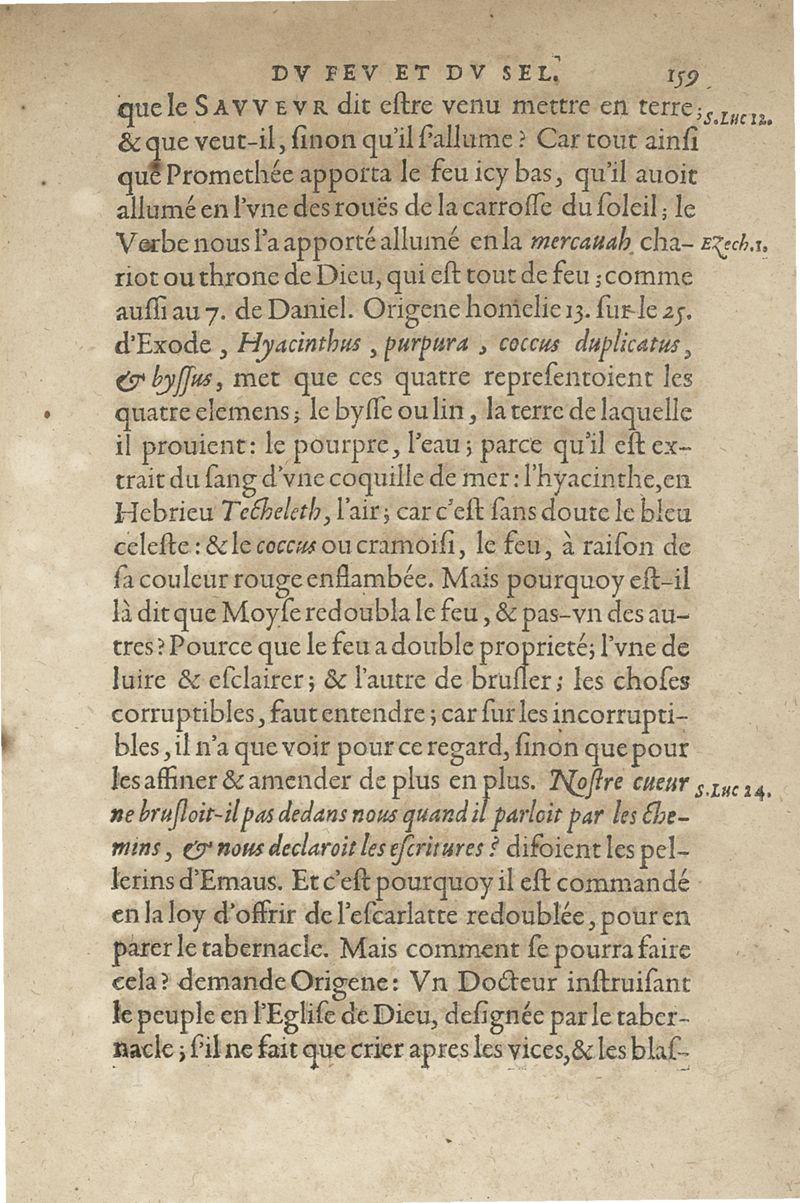 DV FEV ET DV SEL. 159
que le SAVVEVR dit eſtre venu mettre en terre; S. Luc 12.
& que veut-il, ſinon qu'il ſ'allume? Car tout ainſi
que Promethée apporta le feu icy bas, qu'il auoit
allumé en l'vne des rouës de la carroſſe du ſoleil; le
Verbe nous l'a apporté allumé en la mercauah cha- Ezech. 1.
riot ou throne de Dieu, qui eſt tout de feu; comme
auſſi au 7. de Daniel. Origene homelie 13. ſur le 25.
d'Exode, Hyacinthus, purpura, coccus duplicatus,
& byſſus, met que ces quatre repreſentoient les
quatre elemens; le byſſe ou lin, la terre de laquelle
il prouient: le pourpre, l'eau; parce qu'il eſt ex-
trait du ſang d'vne coquille de mer: l'hyacinthe, en
Hebrieu Techeleth, l'air; car c'eſt ſans doute le bleu
celeſte: & le coccus ou cramoiſi, le feu, à raiſon de
ſa couleur rouge enflambée. Mais pourquoy eſt-il
là dit que Moyſe redoubla le feu, & pas-vn des au-
tres? Pource que le feu a double proprieté; l'vne de
luire & eſclairer; & l'autre de bruſler; les choſes
corruptibles, faut entendre; car ſur les incorrupti-
bles, il n'a que voir pour ce regard, ſinon que pour
les affiner & amender de plus en plus. Noſtre cueur S. Luc 24.
ne bruſloit-il pas dedans nous quand il parloit par les che-
mins, & nous declaroit les eſcritures? diſoient les pel-
lerins d'Emaus. Et c'eſt pourquoy il eſt commandé
en la loy d'offrir de l'eſcarlatte redoublée, pour en
parer le tabernacle. Mais comment ſe pourra faire
cela? demande Origene: Vn Docteur inſtruiſant
le peuple en l'Egliſe de Dieu, deſignée par le taber-
nacle; ſ'il ne fait que crier apres les vices, & les blaſ-